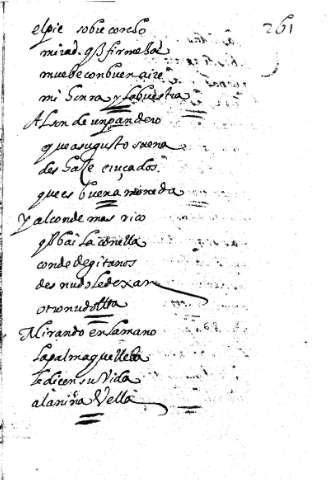 261
el pie sobre corcho
mirad. q̃ firmeza
muebe con buen aire
mi honra y la buestra
Al son de un pandero
que a su gusto suena
des hase cruçados
que es buena moneda
Y al conde mas rico
q̃
conde de gitanos
desnudo le dexan
otro nudo
Mirando en la mano
la palma que lleba
le dicen su Vida
a la niña Vella